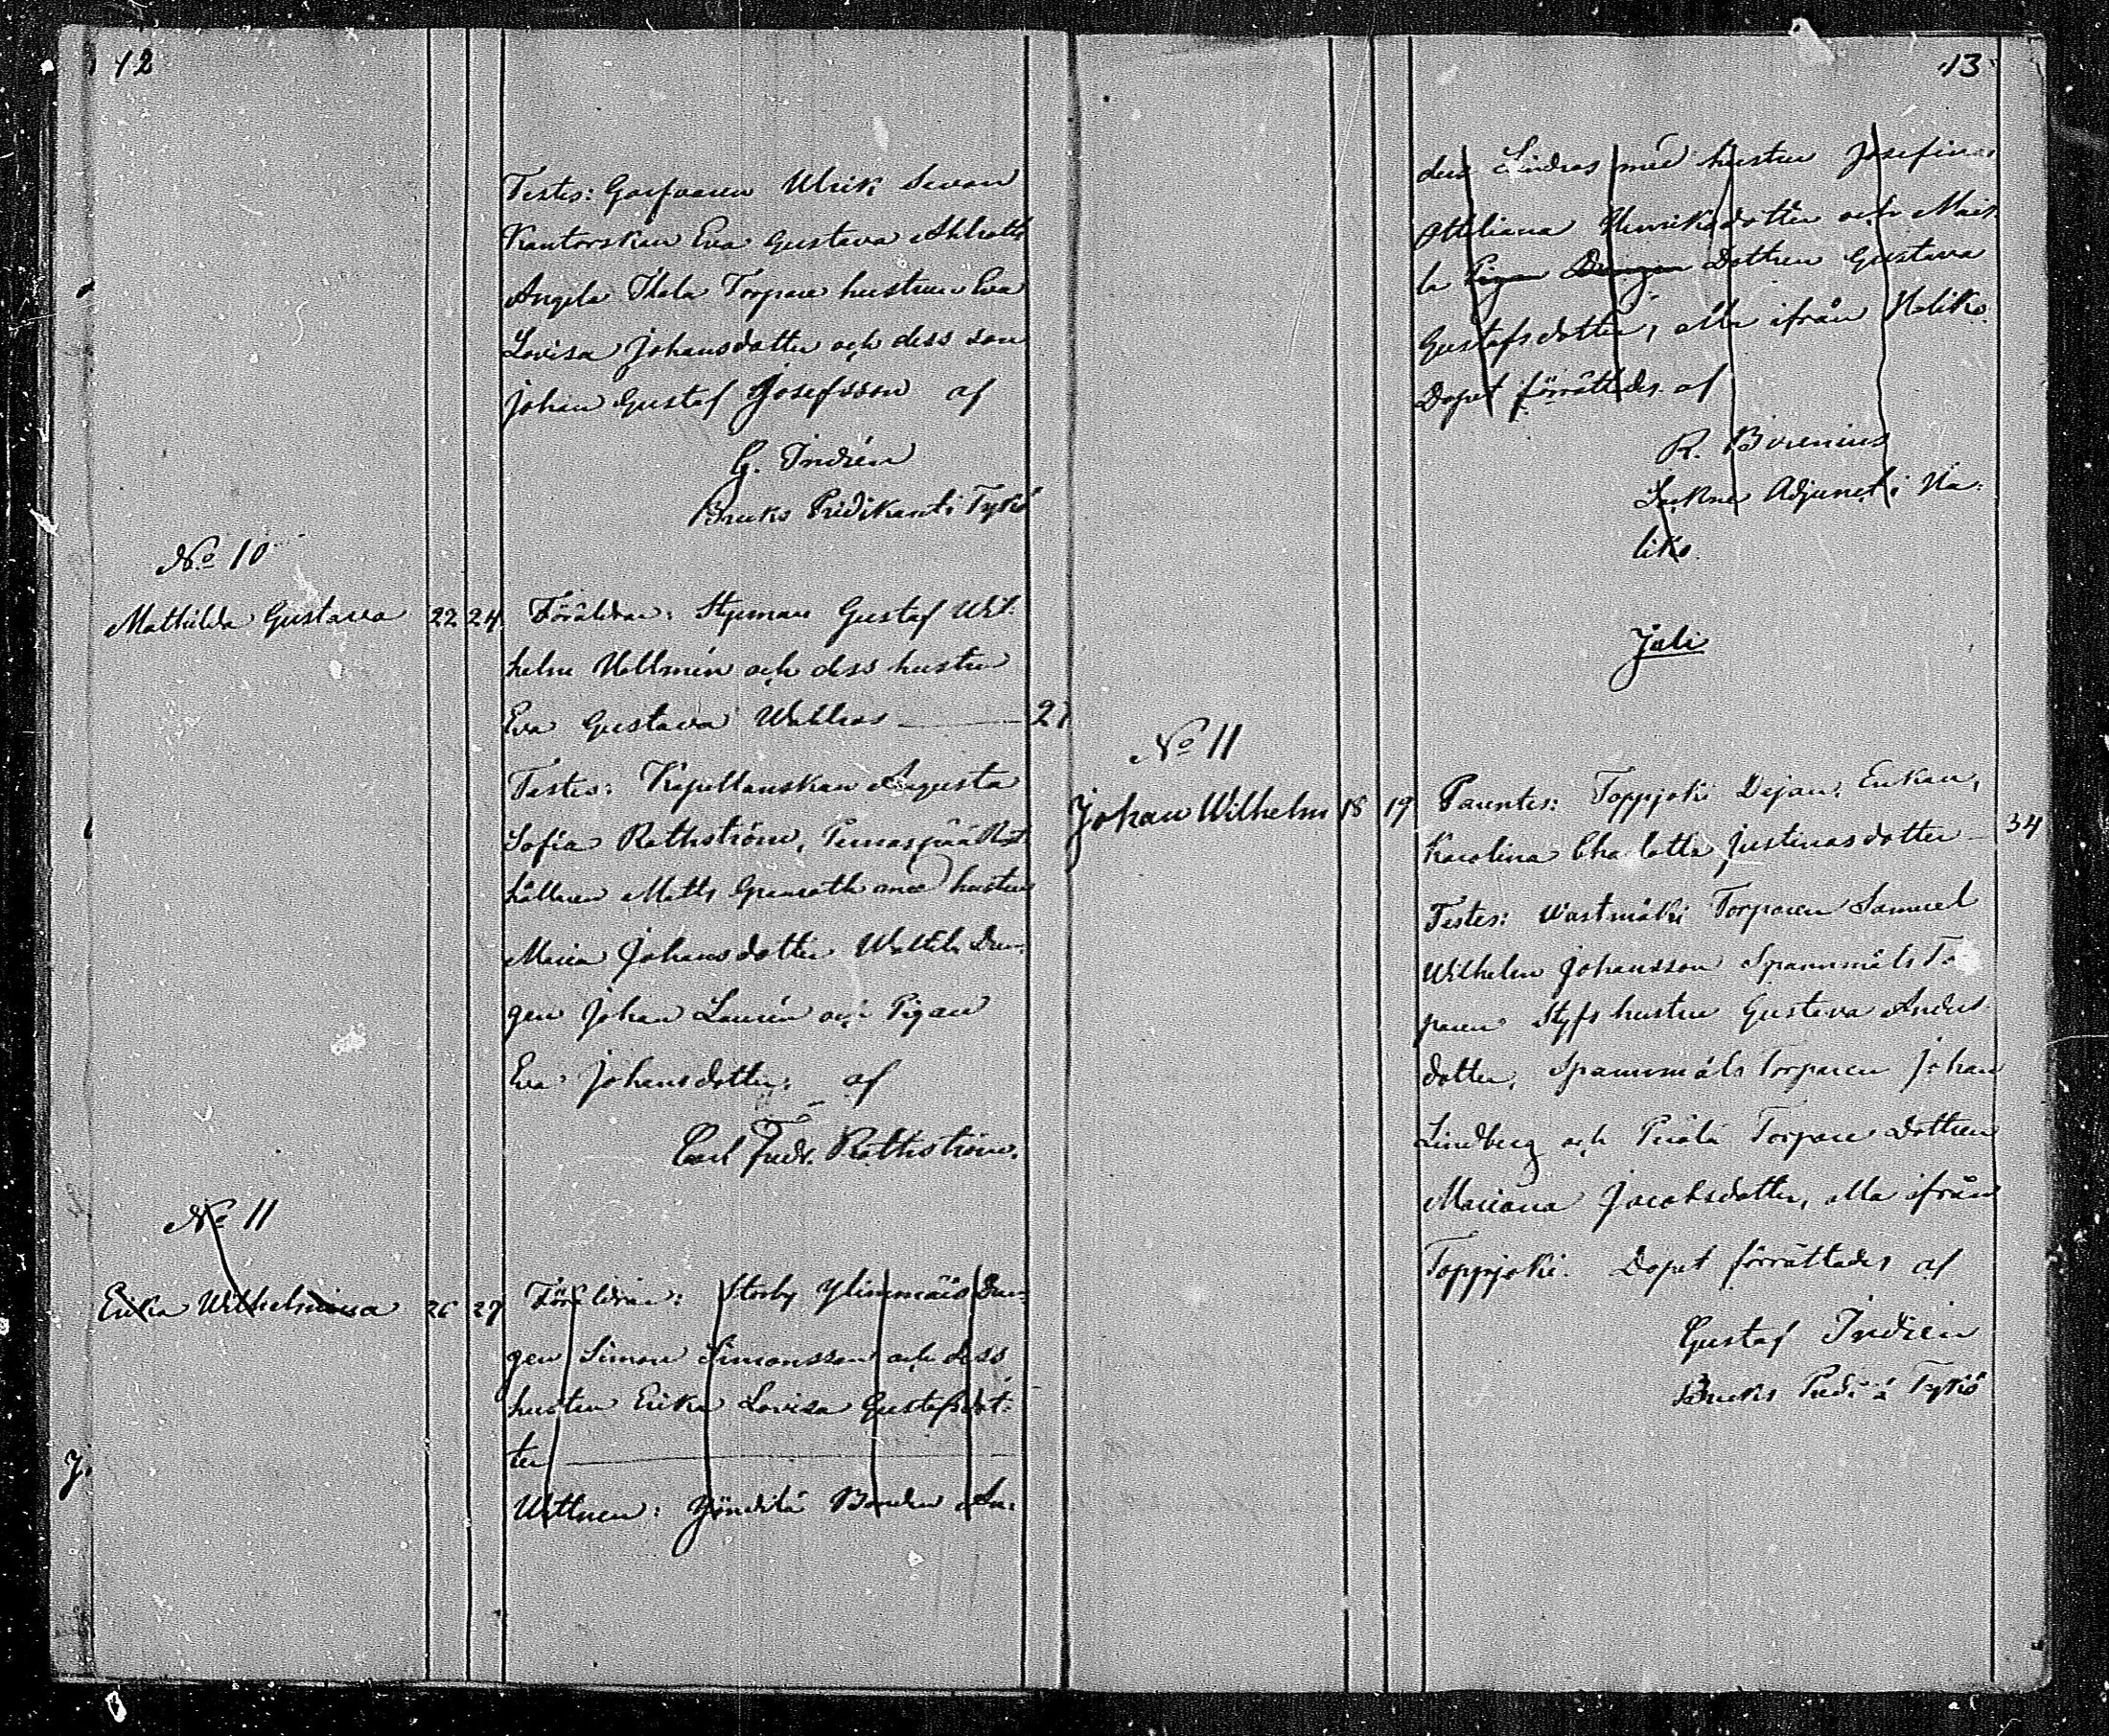 12
Testes: Garfvaren Ulrik Sevon
Kantorskan Eva Gustava Ahlroth
Angela Torpare hustrun Eva
Lovisa Johansdotter och dess son
Johan Gustaf Josefsson af
G. Indrén
Bruks Predikant i Tykö
No 10
Mathilda Gustava 22 24 Föräldrar: Styrman Gustaf Wil-
helm Hellmén och dess hustru
Eva Gustava Wahlros — 27
Testes: Kapellanskan Augusta
Sofia Rothström, Rust-
hållaren Matts Grenroth med hustru
Maria Johansdotter Drän-
gen Johan Laurén och Pigan
Eva Johansdotter; af
Carl Fredr. Rothström.
No 11
Erika Wilhelmina 26 27 Föräldrar: Storby Ylimmäis Drän-
gen Simon Simonsson och dess
hustru Erika Lovisa Gustafsdot-
ter —
Wittnen: Bonden An-
13
ders Lindros med hustru Josefina
Ottiliana Henriksdotter och
la Pigan Drängen Dottren Gustava
Gustafsdotter, alla ifrån Haliko.
Dopet förrättades af
R. Borenius
Sockne Adjunct i Ha-
liko.
Juli
No 11
Johan Wilhelm 18 19 Parentes: Toppjoki Dejan, Enkan,
Karolina Charlotta Justinasdotter — 34
Testes: Wastmäki Torparen Samuel
Wilhelm Johansson Spannmåls Tor
paren Styfs hustru Gustava Anders
dotter, Spannmåls Torparen Johan
Lindberg och Torpare Dottren
Mariana Jacobsdotter, alla ifrån
Toppjoki. Dopet förrättades af
Gustaf Indrén
Bruks Pred. i Tykö